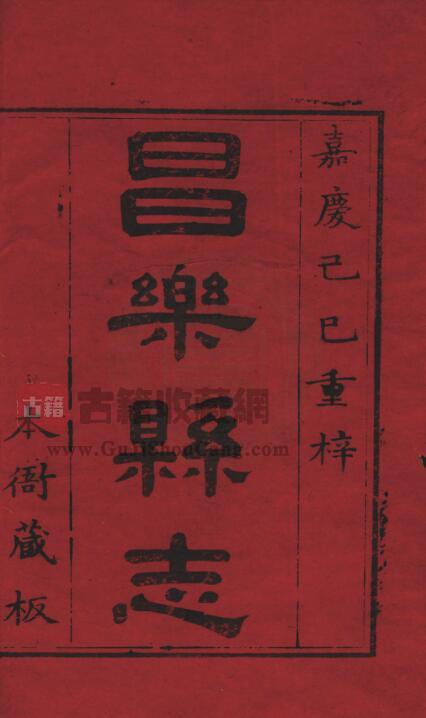 嘉慶己巳重梓
昌樂縣志
本衙藏板
古籍
古籍收藏網
www.GuJiShouCang.com